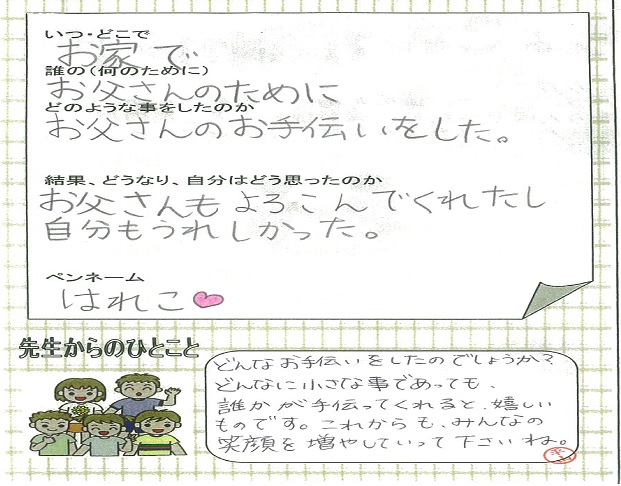 いつ・どこで
お家で
誰の(何のために)
お父さんのために
どのような事をしたのか
お父さんのお手伝いをした。
結果、どうなり、自分はどう思ったのか
お父さんもよろこんでくれたし
自分もうれしかった。
ペンネーム
はれこ
先生からのひとこと
どんなお手伝いをしたのでしょうか?
どんなに小さな事であっても、
誰かが手伝ってくれると、嬉しい
ものです。これからも、みんなの
笑顔を増やしていって下さいね。